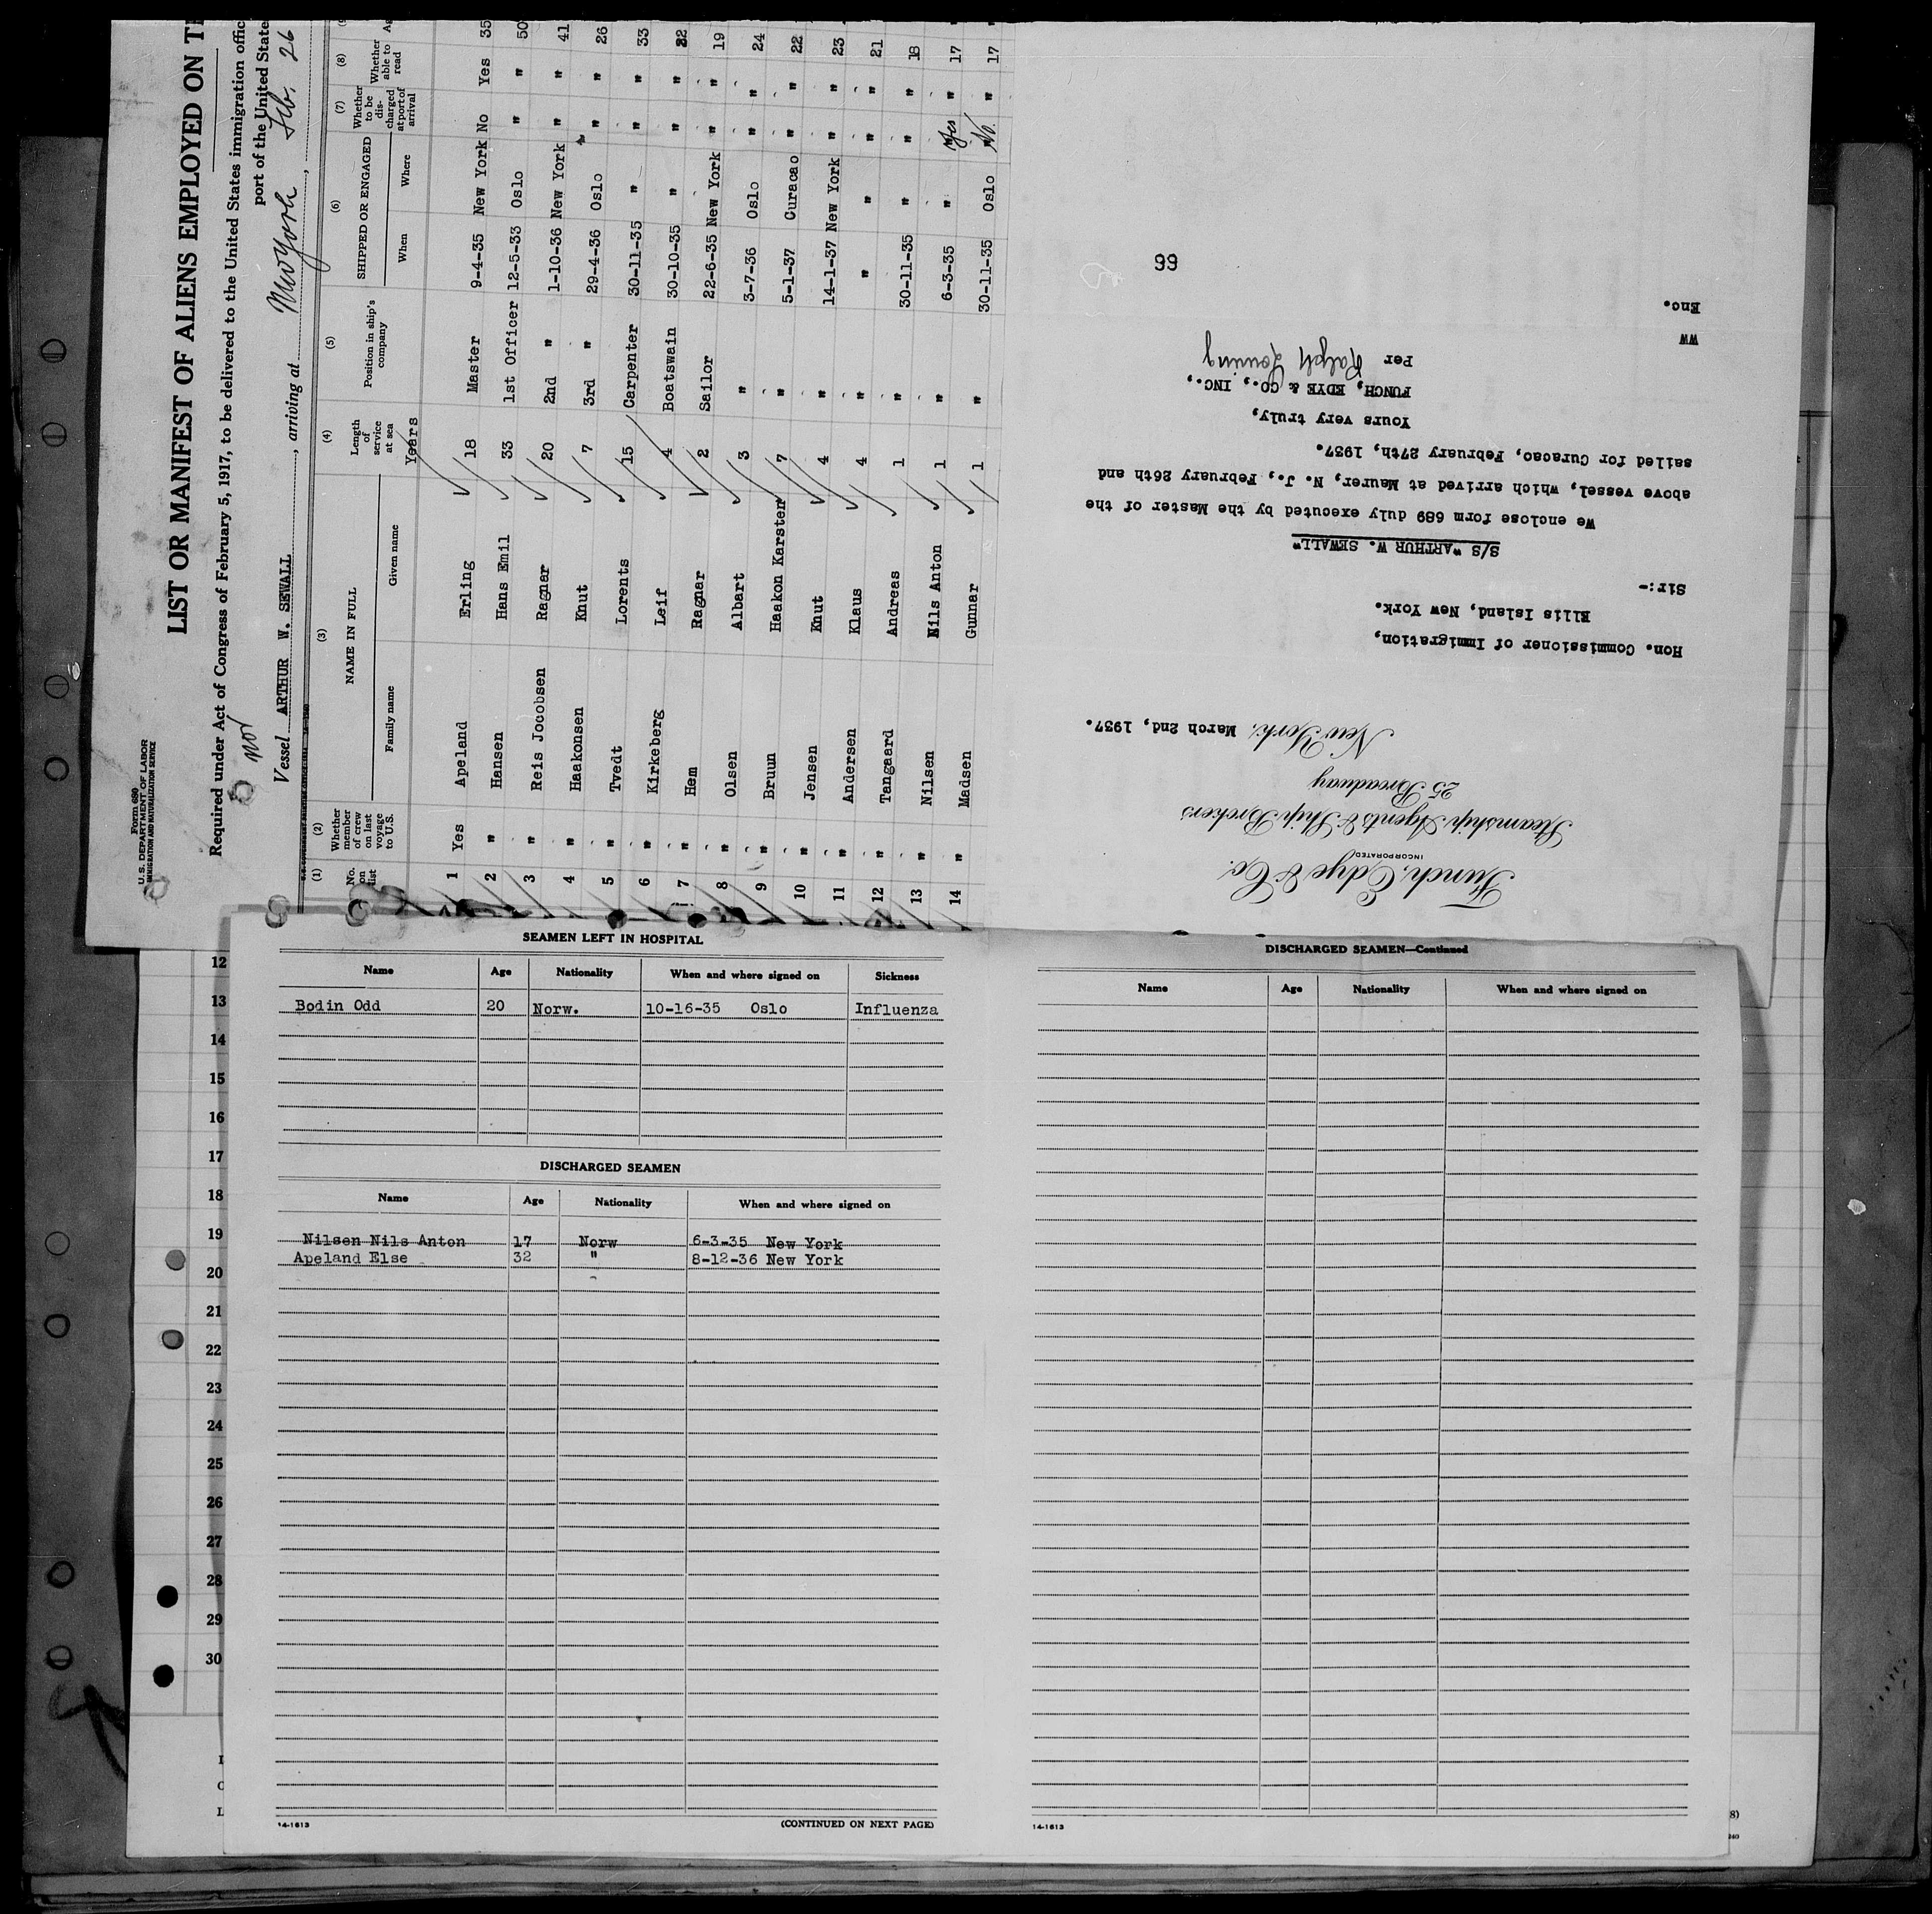 Form 680
U. S. DEPARTMENT OF LABOR
IMMIGRATION AND NATURALIZATION SERVICE
LIST OR MANIFEST OF ALIENS EMPLOYED ON
Required under Act of Congress of February 5, 1917, to be delivered to the United States immigration
port of the United State
nor
Vessel ARTHUR W. SEWALL, arriving at New York, Feb. 26
(1) (2) (3) (4) (5) (6) (7) (8)
No. on list
Whether member of crew on last voyage to U.S.
NAME IN FULL
Family name Given name
Length of service at sea
Position in ship's company
SHIPPED OR ENGAGED
When Where
Whether to be discharged at port of arrival
Whether able to read
Years
1 Yes Apeland Erling 18 Master 9-4-35 New York No Yes 35
2 " Hansen Hans Emil 33 1st Officer 12-5-33 Oslo " " 50
3 " Reis Jocobsen Ragnar 20 2nd " 1-10-36 New York " " 41
4 " Haakonsen Knut 7 3rd " 29-4-36 Oslo " " 26
5 " Tvedt Lorents 15 Carpenter 30-11-35 " " " 33
6 " Kirkeberg Leif 4 Boatswain 30-10-35 " " " 22
7 " Hem Ragnar 2 Sailor 22-6-35 New York " " 19
8 " Olsen Albart 3 " 3-7-36 Oslo " " 24
9 " Bruun Haakon Karsten 7 " 5-1-37 Curacao " " 22
10 " Jensen Knut 4 " 14-1-37 New York " " 23
11 " Andersen Klaus 4 " " " " " 21
12 " Tangaard Andreas 1 " 30-11-35 " " " 18
13 " Nilsen Nils Anton 1 " 6-3-35 " Yes " 17
14 " Madsen Gunnar 1 " 30-11-35 Oslo No. " 17
Funch, Edye & Co.
INCORPORATED
Steamship Agents & Ship Brokers
25 Broadway
New York, March 2nd, 1937.
Hon. Commissioner of Immigration,
Ellis Island, New York.
Sir:-
S/S "ARTHUR W. SEWALL"
We enclose form 689 duly executed by the Master of the
above vessel, which arrived at Maurer, N. J., February 26th and
sailed for Curacao, February 27th, 1937.
Yours very truly,
FUNCH, EDYE & CO., INC.,
Per Ralph
WW
Enc.
99
SEAMEN LEFT IN HOSPITAL
Name Age Nationality When and where signed on Sickness
Bodin Odd 20 Norw. 10-16-35 Oslo Influenza
DISCHARGED SEAMEN
Name Age Nationality When and where signed on
Nilsen Nils Anton 17 Norw 6-3-35 New York
Apeland Else 32 " 8-12-36 New York
(CONTINUED ON NEXT PAGE)
14-1613
DISCHARGED SEAMEN—Continued
Name Age Nationality When and where signed on
14-1613
12
13
14
15
16
17
18
19
20
21
22
23
24
25
26
27
28
29
30
8)
240